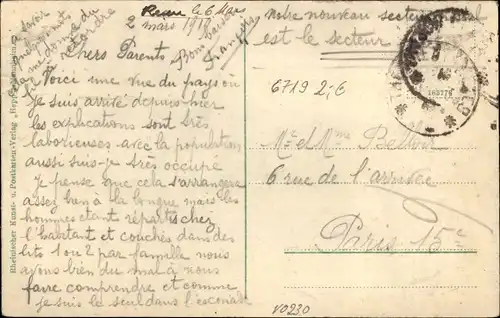 Reçue le 6 Mar
2 mars 1919
notre nouveau secteur
est le secteur
Chers Parents
Voici une vue du pays où
je suis arrivé depuis hier
les explications sont très
laborieuses avec la population
aussi suis-je très occupé
Je pense que cela s'arrangera
assez bien à la longue mais les
hommes étant répartis chez
l'habitant et couchés dans des
lits 1 ou 2 par famille nous
avons bien du mal à nous
faire comprendre et comme
je suis le seul dans l'escouade
Bons baisers
6719 2,-€
Mr et Mme
6 rue de l'arrivée
Paris 15e
V0230
Rheinischer Kunst- u. Postkarten-Verlag